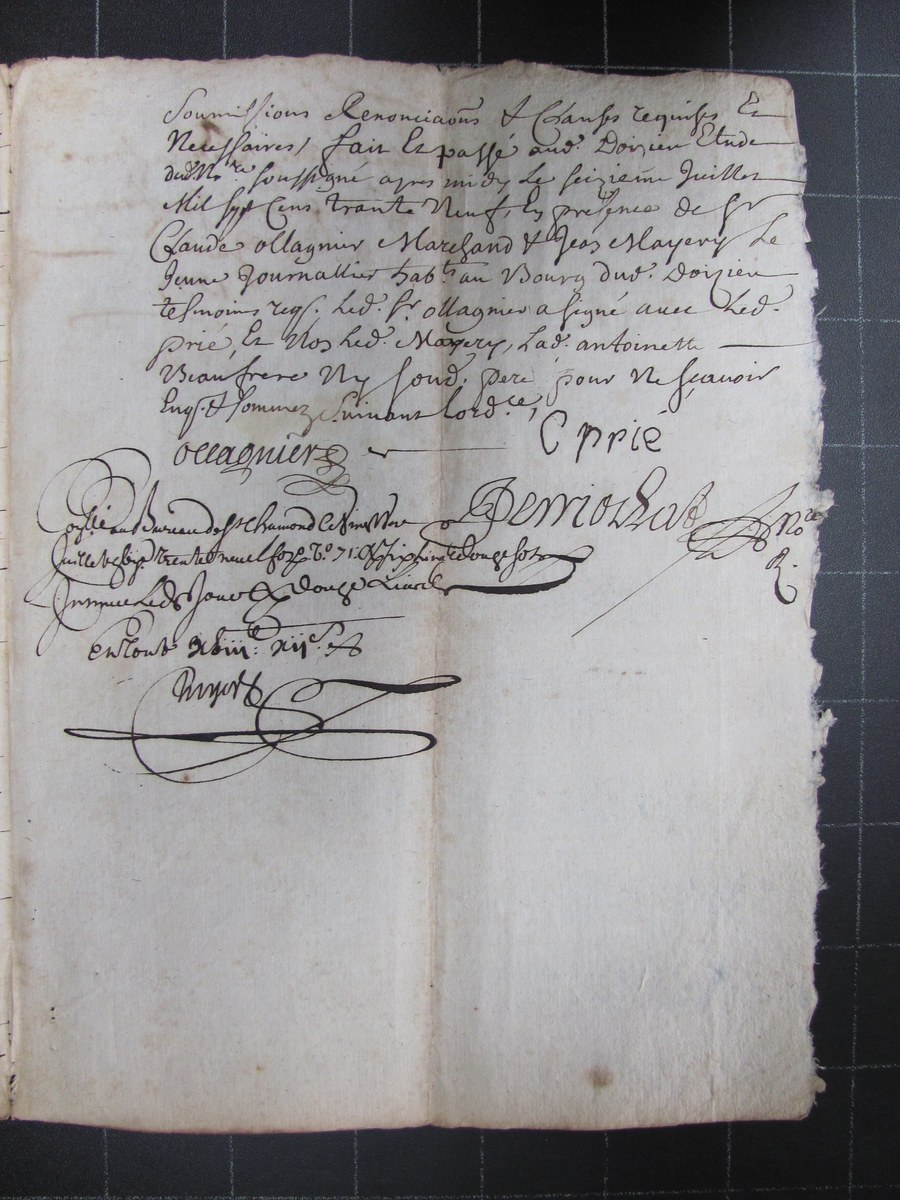 Soumissions Renonciaons & Clauses requises Et
Necessaires, fait Et passé aud. Doizieu Etude
dud. No.re soussigné apres midy Le seizieme Juillet
Mil sept Cens trante Neuf, En presence de Sr
Claude ollagnier Marchand & Jean Mayery Le
Jeune Journallier hab.ts au Bourg dud. Doizieu
tesmoins reqs. Led. Sr. ollagnier a signé avec Led.
prié, Et Non Led. Mayery, Lad. antoinette
Beaufrere Ny sond. pere pour Ne sçavoir
Enqs. & sommez suivant lord.ce,
ollagnier C prié
Perriochat No.re
R.
au Bureau de St Chamond le
Juillet trente neuf fo. 71. douze sols
douze
En tout